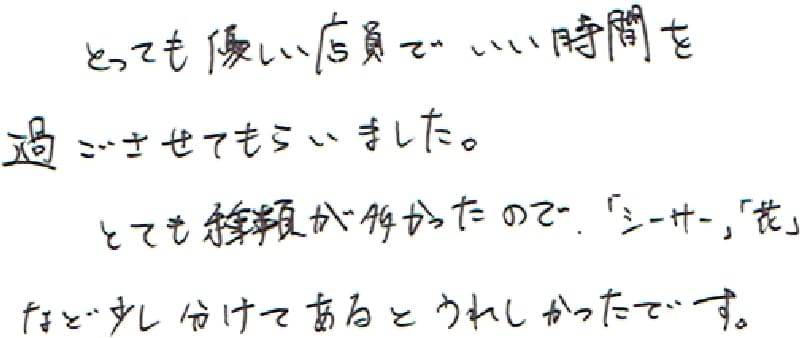 とっても優しい店員でいい時間を
過ごさせてもらいました。
とても種類が多かったので、「シーサー」「花」
など少し分けてあるとうれしかったです。